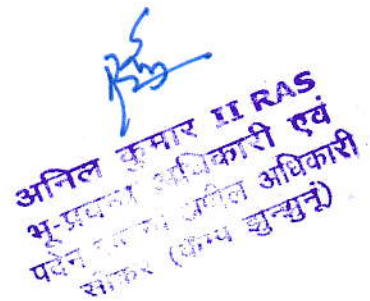 अनिल कुमार II RAS
भू-प्रबन्ध अधिकारी एवं
पदेन अपील अधिकारी
सीकर (कैम्प झुन्झुनूं)